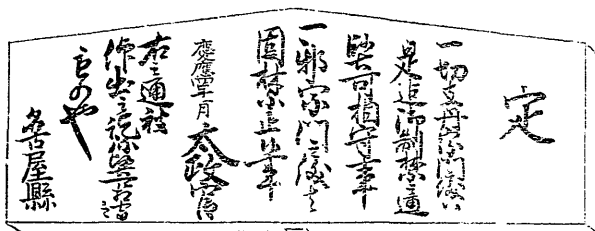 定
一切支丹宗門之儀ハ
是迄御制禁之通
堅可相守事
一邪宗門之儀者
固禁止候事
慶應四年三月 太政官
右之通被
仰出之訖
もの也
名古屋縣